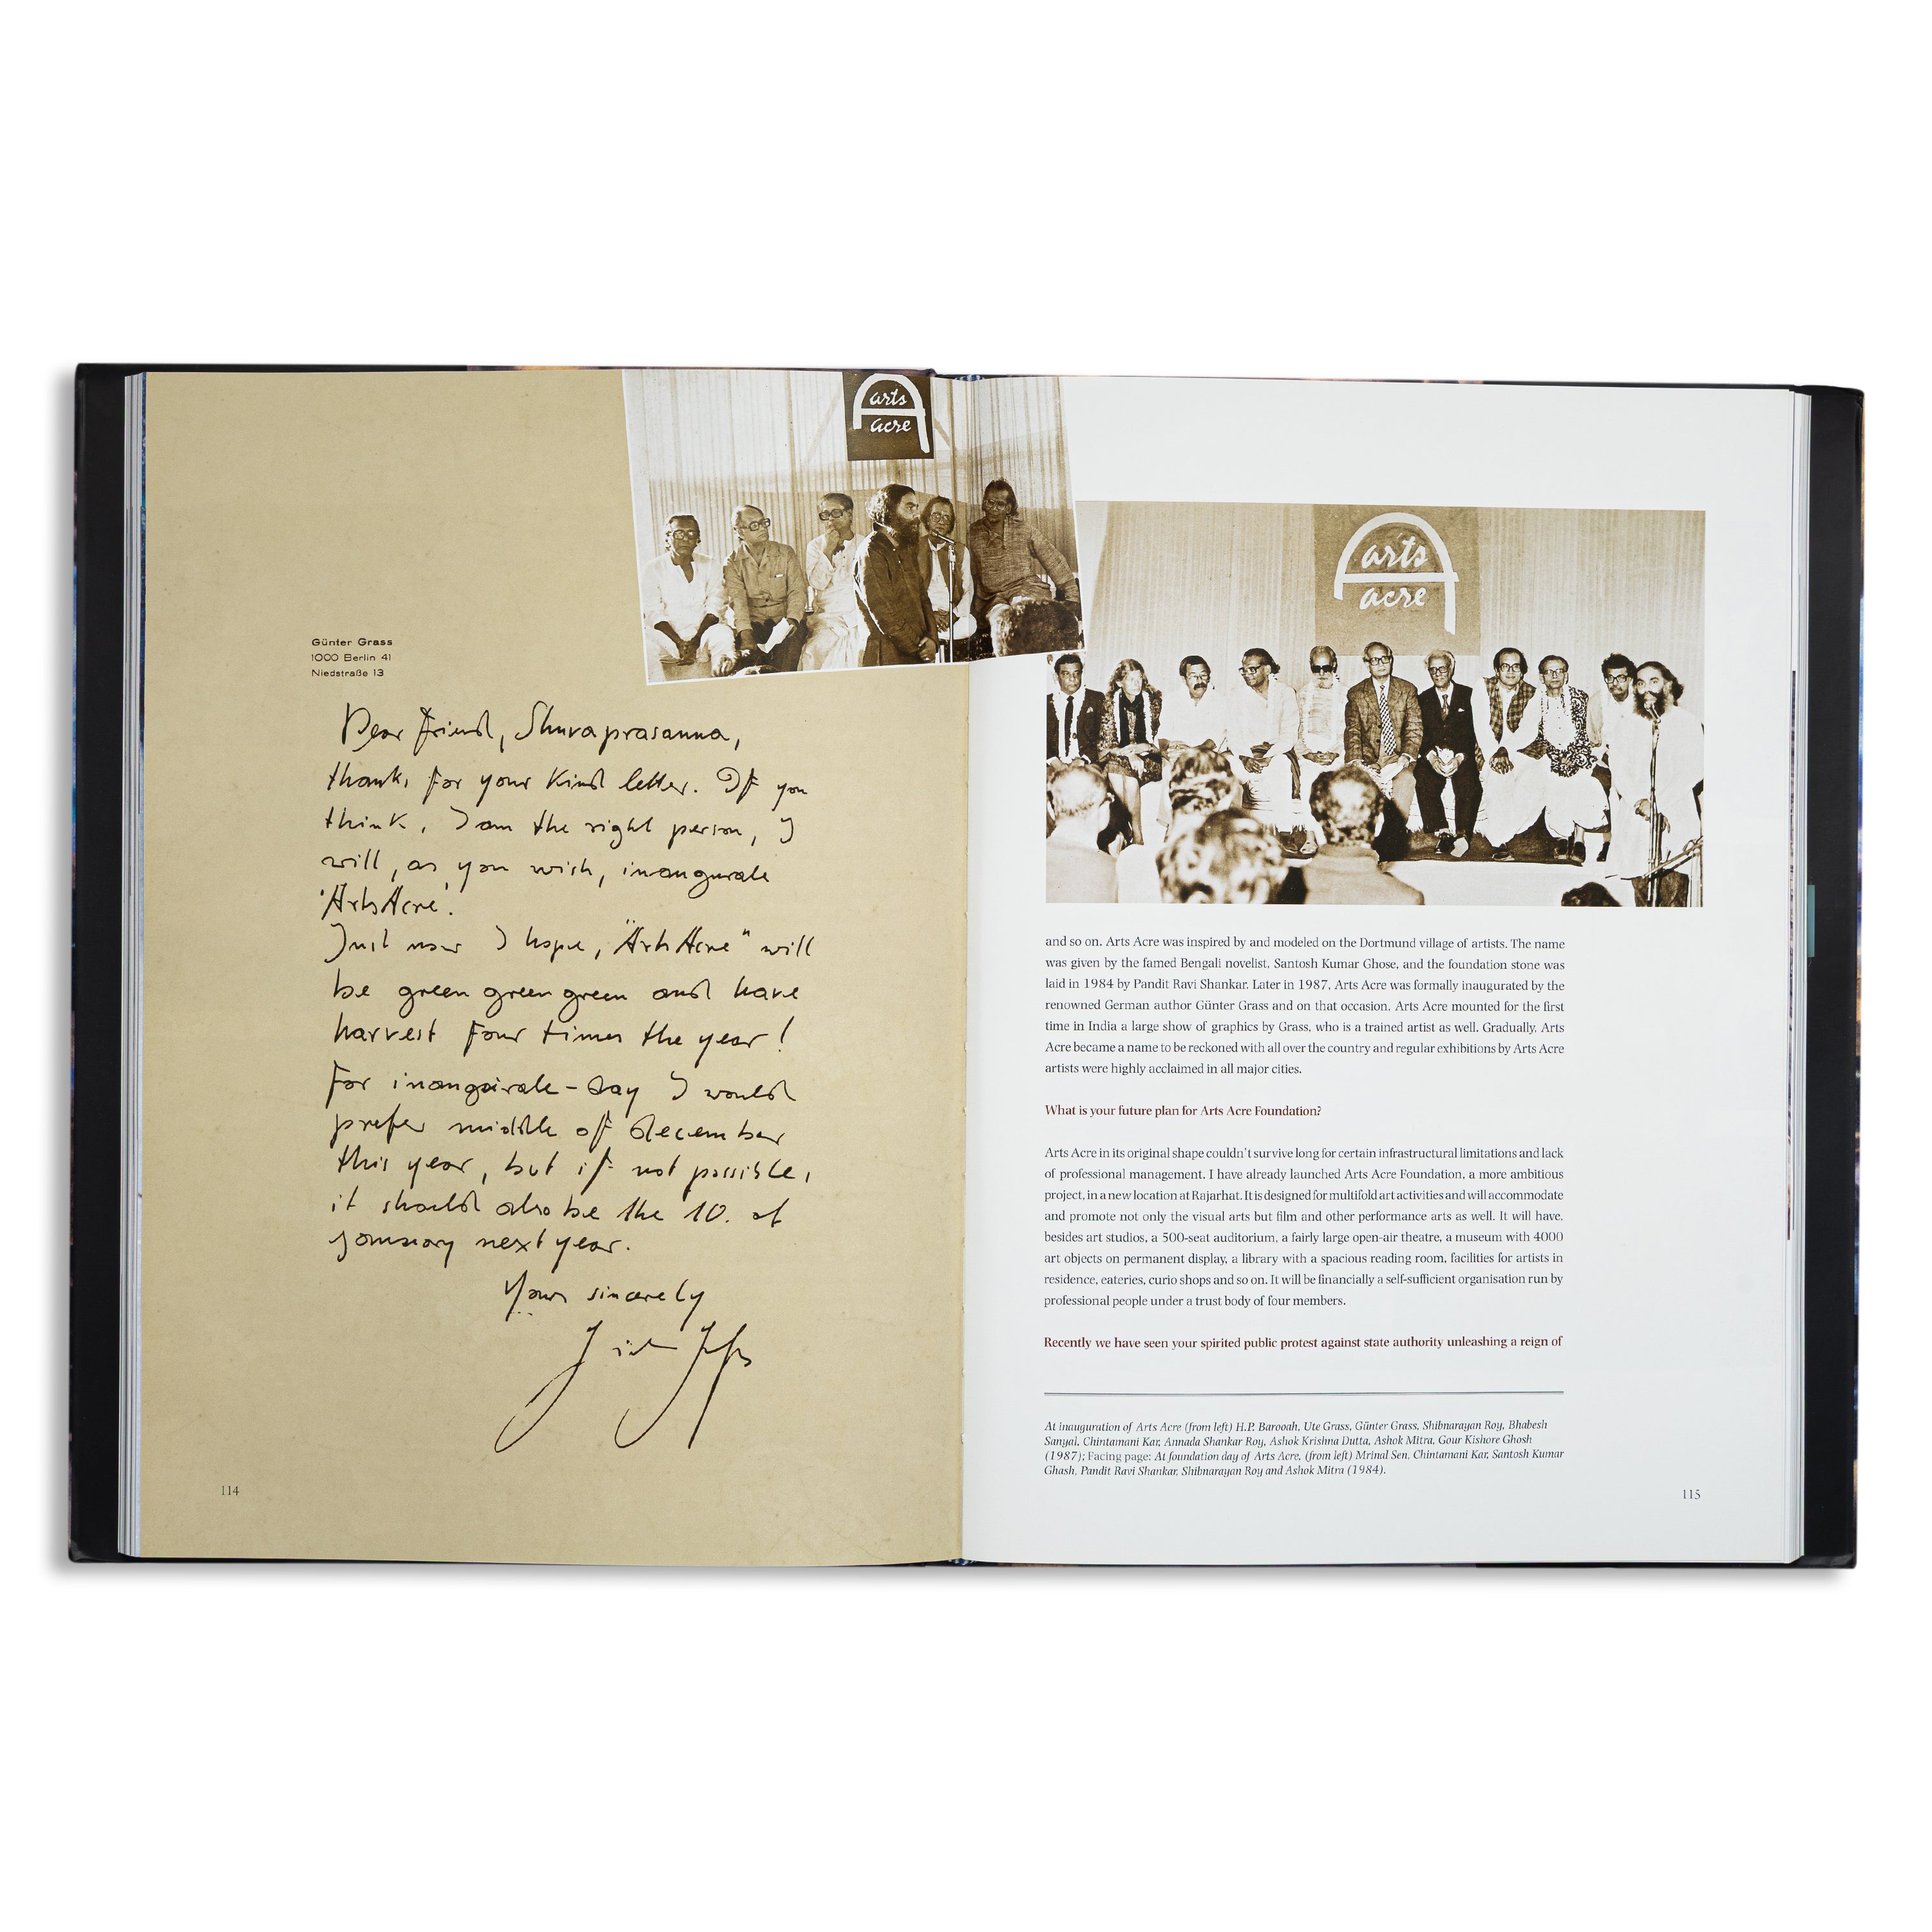 arts
acre
Günter Grass
1000 Berlin 41
Niedstraße 13
Dear friend, Shuvaprasanna,
thanks for your kind letter. If you
think, I am the right person, I
will, as you wish, inaugurale
"Arts Acre".
Just now I hope, "Arts Acre" will
be green green green and have
harvest four times the year!
For inaugurale-day I would
prefer middle of december
this year, but if not possible,
it should also be the 10. of
january next year.
Yours sincerely
114
arts
acre
and so on. Arts Acre was inspired by and modeled on the Dortmund village of artists. The name
was given by the famed Bengali novelist, Santosh Kumar Ghose, and the foundation stone was
laid in 1984 by Pandit Ravi Shankar. Later in 1987, Arts Acre was formally inaugurated by the
renowned German author Günter Grass and on that occasion, Arts Acre mounted for the first
time in India a large show of graphics by Grass, who is a trained artist as well. Gradually, Arts
Acre became a name to be reckoned with all over the country and regular exhibitions by Arts Acre
artists were highly acclaimed in all major cities.
What is your future plan for Arts Acre Foundation?
Arts Acre in its original shape couldn't survive long for certain infrastructural limitations and lack
of professional management. I have already launched Arts Acre Foundation, a more ambitious
project, in a new location at Rajarhat. It is designed for multifold art activities and will accommodate
and promote not only the visual arts but film and other performance arts as well. It will have,
besides art studios, a 500-seat auditorium, a fairly large open-air theatre, a museum with 4000
art objects on permanent display, a library with a spacious reading room, facilities for artists in
residence, eateries, curio shops and so on. It will be financially a self-sufficient organisation run by
professional people under a trust body of four members.
Recently we have seen your spirited public protest against state authority unleashing a reign of
At inauguration of Arts Acre (from left) H.P. Barooah, Ute Grass, Günter Grass, Shibnarayan Roy, Bhabesh
Sanyal, Chintamani Kar, Annada Shankar Roy, Ashok Krishna Dutta, Ashok Mitra, Gour Kishore Ghosh
(1987); Facing page: At foundation day of Arts Acre, (from left) Mrinal Sen, Chintamani Kar, Santosh Kumar
Ghash, Pandit Ravi Shankar, Shibnarayan Roy and Ashok Mitra (1984).
115